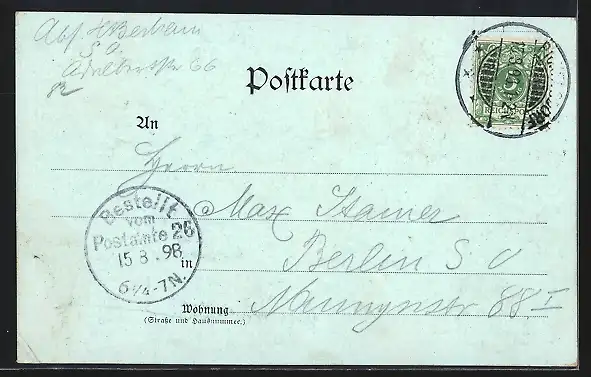 Abs. H Berhain
S. O.
Adalbertstr 66
Postkarte
REICHSPOST
An
Herrn
Max Stamer
in Berlin S O
Wohnung Naunynstr 88 I
(Straße und Hausnummer.)
Bestellt
vom
Postamte 26
15 8 . 98
6¼-7N.